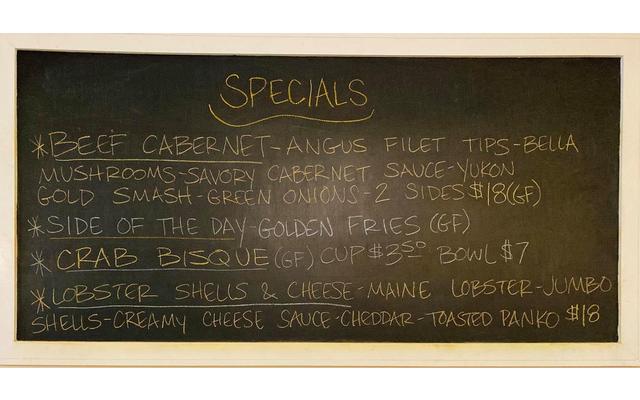 SPECIALS
*BEEF CABERNET-ANGUS FILET TIPS-BELLA
MUSHROOMS-SAVORY CABERNET SAUCE-YUKON
GOLD SMASH-GREEN ONIONS-2 SIDES $18(GF)
*SIDE OF THE DAY-GOLDEN FRIES (GF)
* CRAB BISQUE (GF) CUP $3.50 BOWL $7
*LOBSTER SHELLS & CHEESE-MAINE LOBSTER-JUMBO
SHELLS-CREAMY CHEESE SAUCE-CHEDDAR-TOASTED PANKO $18